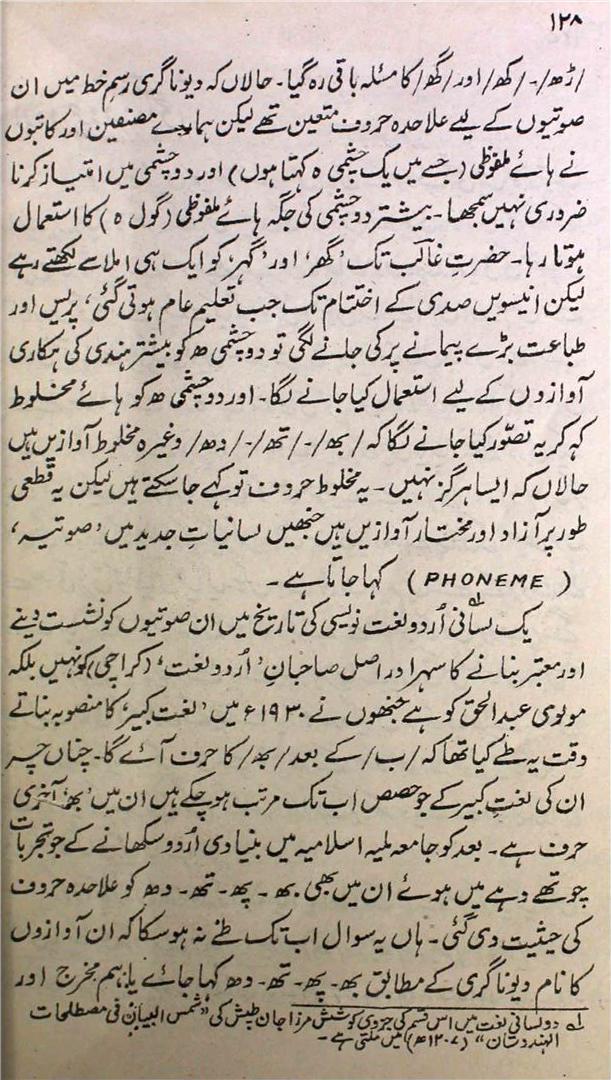 ۱۲۸
/ڑھ/-/کھ/ اور /گھ/ کا مسئلہ باقی رہ گیا۔ حالاں کہ دیوناگری رسم خط میں ان
صوتیوں کے لیے علاحدہ حروف متعین تھے لیکن ہمارے مصنفین اور کاتبوں
نے ہائے ملفوظی (جسے میں یک چشمی ہ کہتا ہوں) اور دو چشمی میں امتیاز کرنا
ضروری نہیں سمجھا۔ بیشتر دو چشمی کی جگہ ہائے ملفوظی (گول ہ) کا استعمال
ہوتا رہا۔ حضرتِ غالبؔ تک 'گھر' اور 'گہر' کو ایک ہی املا سے لکھتے رہے
لیکن انیسویں صدی کے اختتام تک جب تعلیم عام ہوتی گئی، پریس اور
طباعت بڑے پیمانے پر کی جانے لگی تو دو چشمی ھ کو بیشتر ہندی کی ہکاری
آوازوں کے لیے استعمال کیا جانے لگا۔ اور دو چشمی ھ کو ہائے مخلوط
کہہ کر یہ تصوّر کیا جانے لگا کہ /بھ/-/تھ/-/دھ/ وغیرہ مخلوط آوازیں ہیں
حالاں کہ ایسا ہرگز نہیں۔ یہ مخلوط حروف تو کہے جا سکتے ہیں لیکن یہ قطعی
طور پر آزاد اور مختار آوازیں ہیں جنھیں لسانیاتِ جدید میں 'صوتیہ'،
(PHONEME) کہا جاتا ہے۔
یک لسانی لہ اُردو لغت نویسی کی تاریخ میں ان صوتیوں کو نشست دینے
اور معتبر بنانے کا سہرا دراصل صاحبانِ 'اُردو لغت' (کراچی) کو نہیں بلکہ
مولوی عبدالحق کو ہے جنھوں نے ۱۹۳۰ء میں 'لغت کبیر' کا منصوبہ بناتے
وقت یہ طے کیا تھا کہ /ب/ کے بعد /بھ/ کا حرف آئے گا۔ چناں چہ
ان کی لغتِ کبیر کے جو حصص اب تک مرتب ہو چکے ہیں ان میں 'بھ' آخری
حرف ہے۔ بعد کو جامعہ ملیہ اسلامیہ میں بنیادی اُردو سکھانے کے جو تجربات
چوتھے دہے میں ہوئے ان میں بھی بھ۔ پھ۔ تھ۔ دھ کو علاحدہ حروف
کی حیثیت دی گئی۔ ہاں یہ سوال اب تک طے نہ ہو سکا کہ ان آوازوں
کا نام دیوناگری کے مطابق بھ۔ پھ۔ تھ۔ دھ کہا جائے یا ہم مخرج اور
لہ دو لسانی لغت میں اس قسم کی جزوی کوشش مرزا جان طپش کی "شمس البیان فی مصطلحات
الہندوستان" (۱۲۰۷ھ) میں ملتی ہے۔